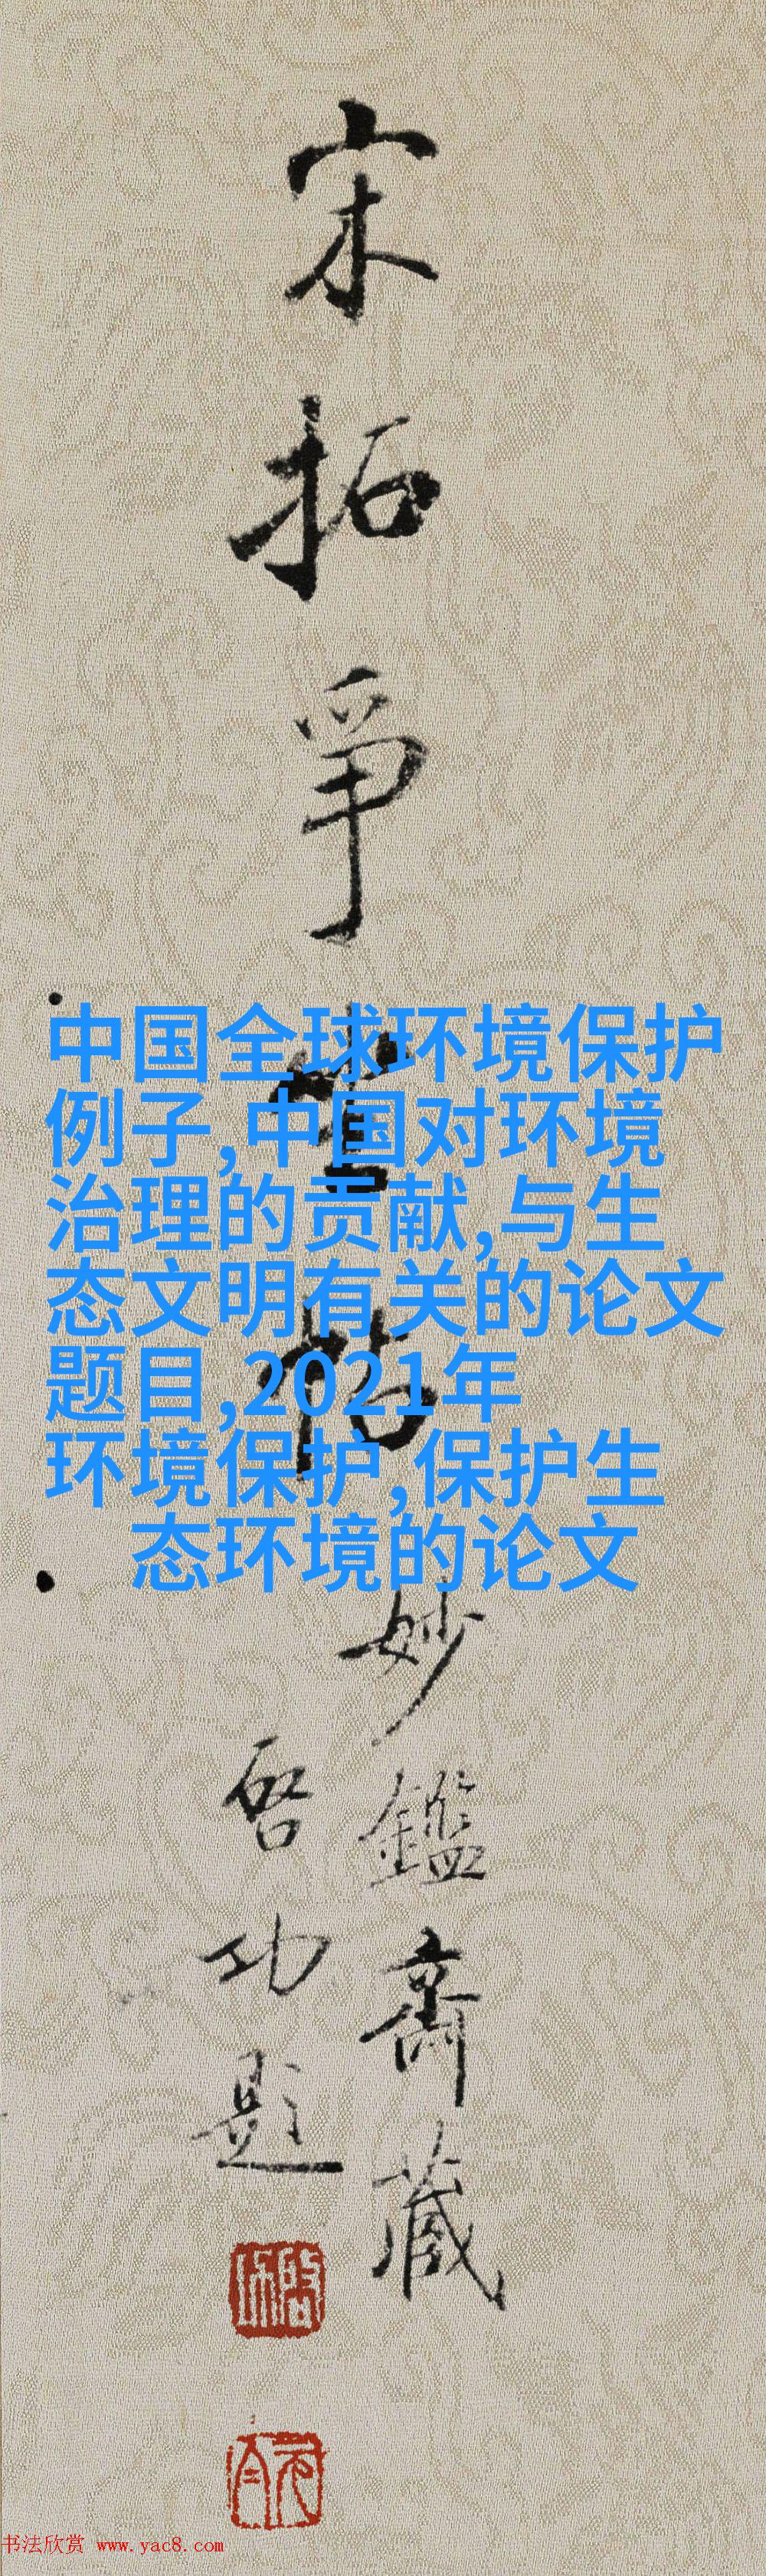 宋拓爭坐帖
中国全球环境保护
例子,中国对环境
治理的贡献,与生
态文明有关的论文
题目,2021年
环境保护,保护生
态环境的论文
妙鑑齋藏
启功題
书法欣赏 www.yac8.com